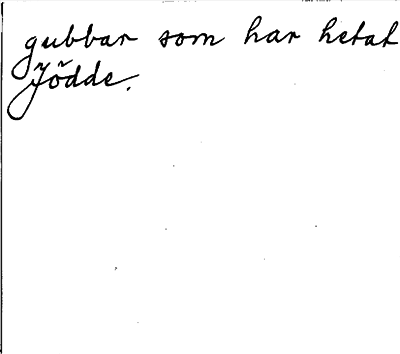 gubbar som har hetat
Jödde.